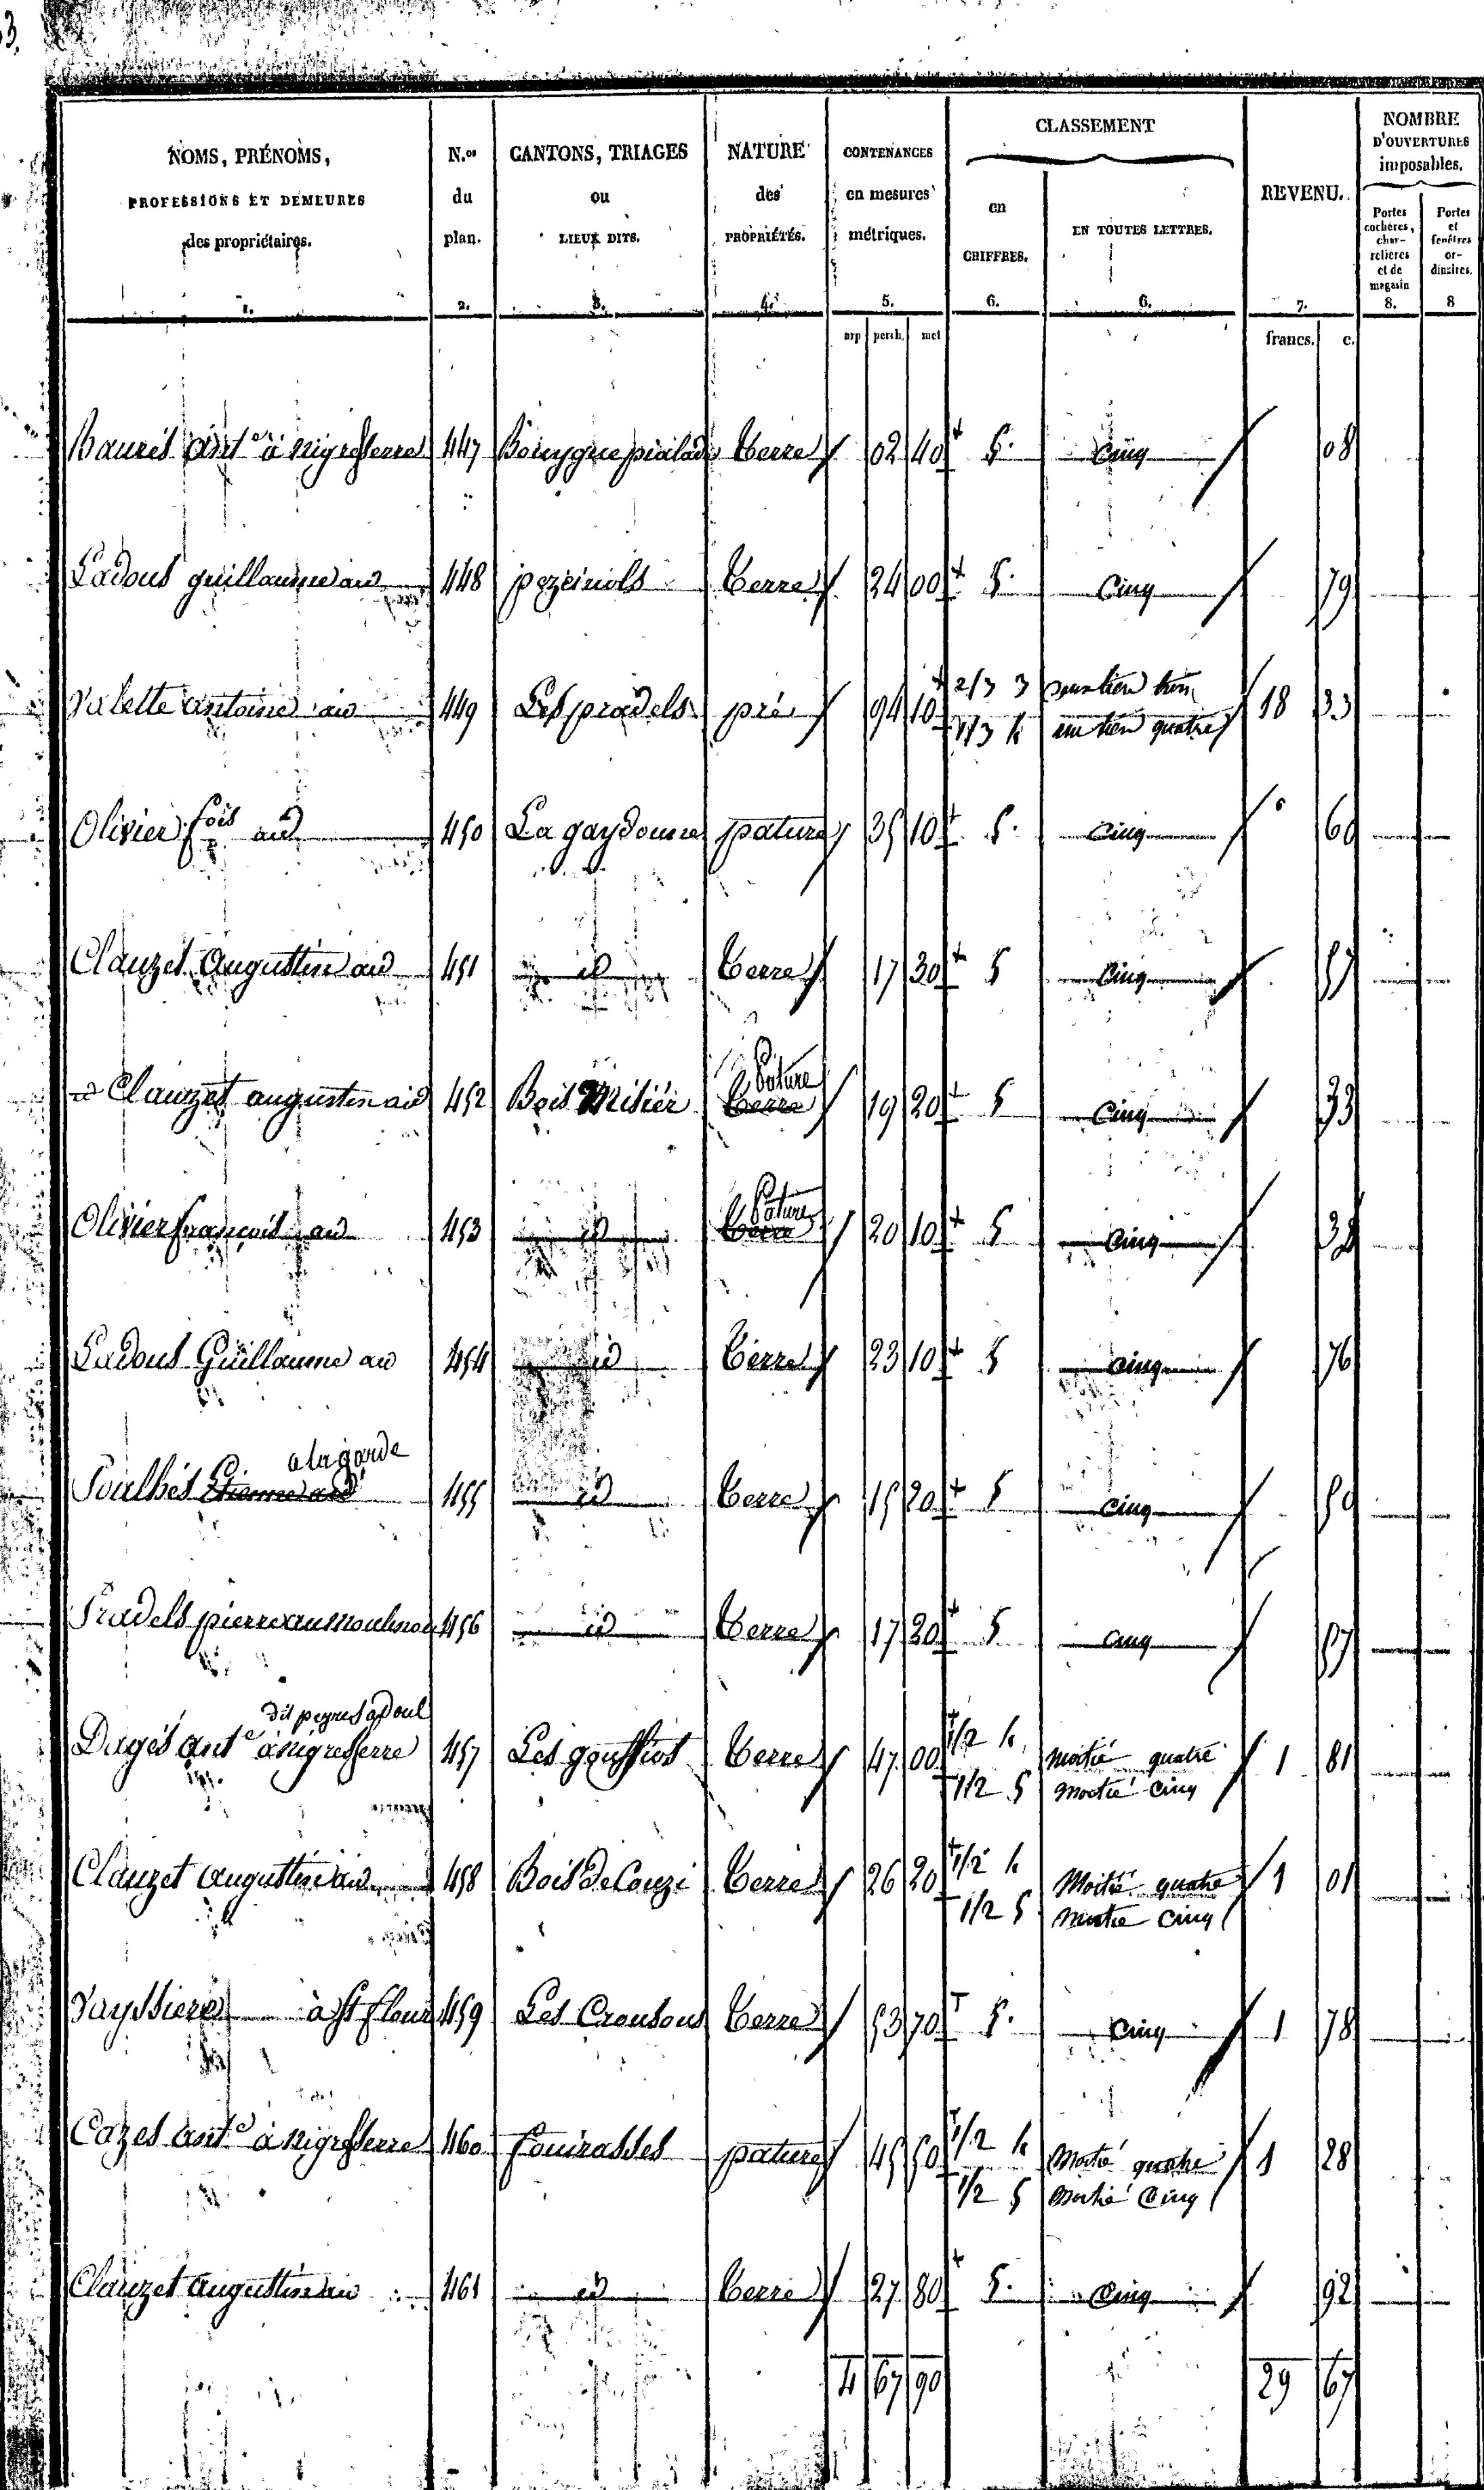 3.
NOMS, PRÉNOMS, PROFESSIONS ET DEMEURES des propriétaires. 1.
N.os du plan. 2.
CANTONS, TRIAGES ou LIEUX DITS. 3.
NATURE des PROPRIÉTÉS. 4.
CONTENANCES en mesures métriques. 5.
CLASSEMENT
en CHIFFRES. 6.
EN TOUTES LETTRES. 6.
REVENU. 7.
NOMBRE D'OUVERTURES imposables.
Portes cochères, charretières et de magasin 8.
Portes et fenêtres ordinaires. 8
arp perch. met francs. c.
Baurés Ant.e à nigresserre 447 Bouygue pialade terre 02 40 5. cinq 08
Ladous guillaume id 448 pezeiriols terre 24 00 5. cinq 79
Valette antoine id 449 Les pradels pré 94 10 2/3 3 deux tiers trois 18 33
1/3 4 un tiers quatre
Olivier fois id 450 La gaydoune pature 35 10 5. cinq 60
Clauzet Augustin id 451 id terre 17 30 5 cinq 57
Pature
id Clauzet augustin id 452 Bois terre 19 20 5 cinq 33
Pature
Olivier françois id 453 id terre 20 10 5 cinq
Ladous Guillaume id 454 id terre 23 10 5 cinq 76
a la garde
Poulhés Etienne id 455 id terre 15 20 5 cinq 50
Pradels pierre au 456 id terre 17 5 cinq 57
dit
Dagés ant.e à nigresserre 457 Les terre 47 00 1/2 4 moitié quatre 1 81
1/2 5 moitié cinq
Clauzet augustin id 458 Bois De Couzi terre 26 20 1/2 4 Moitié quatre 1 01
1/2 5 moitié cinq
Vayssiere à St flour 459 Les Crousous terre 53 70 5. cinq 1 78
Cazes ant.e à nigresserre 460 fouirasses pature 45 50 1/2 4 Moitié quatre 1 28
1/2 5 moitié Cinq
Clauzet augustin id 461 id terre 27 80 5. Cinq 92
4 67 90 29 67